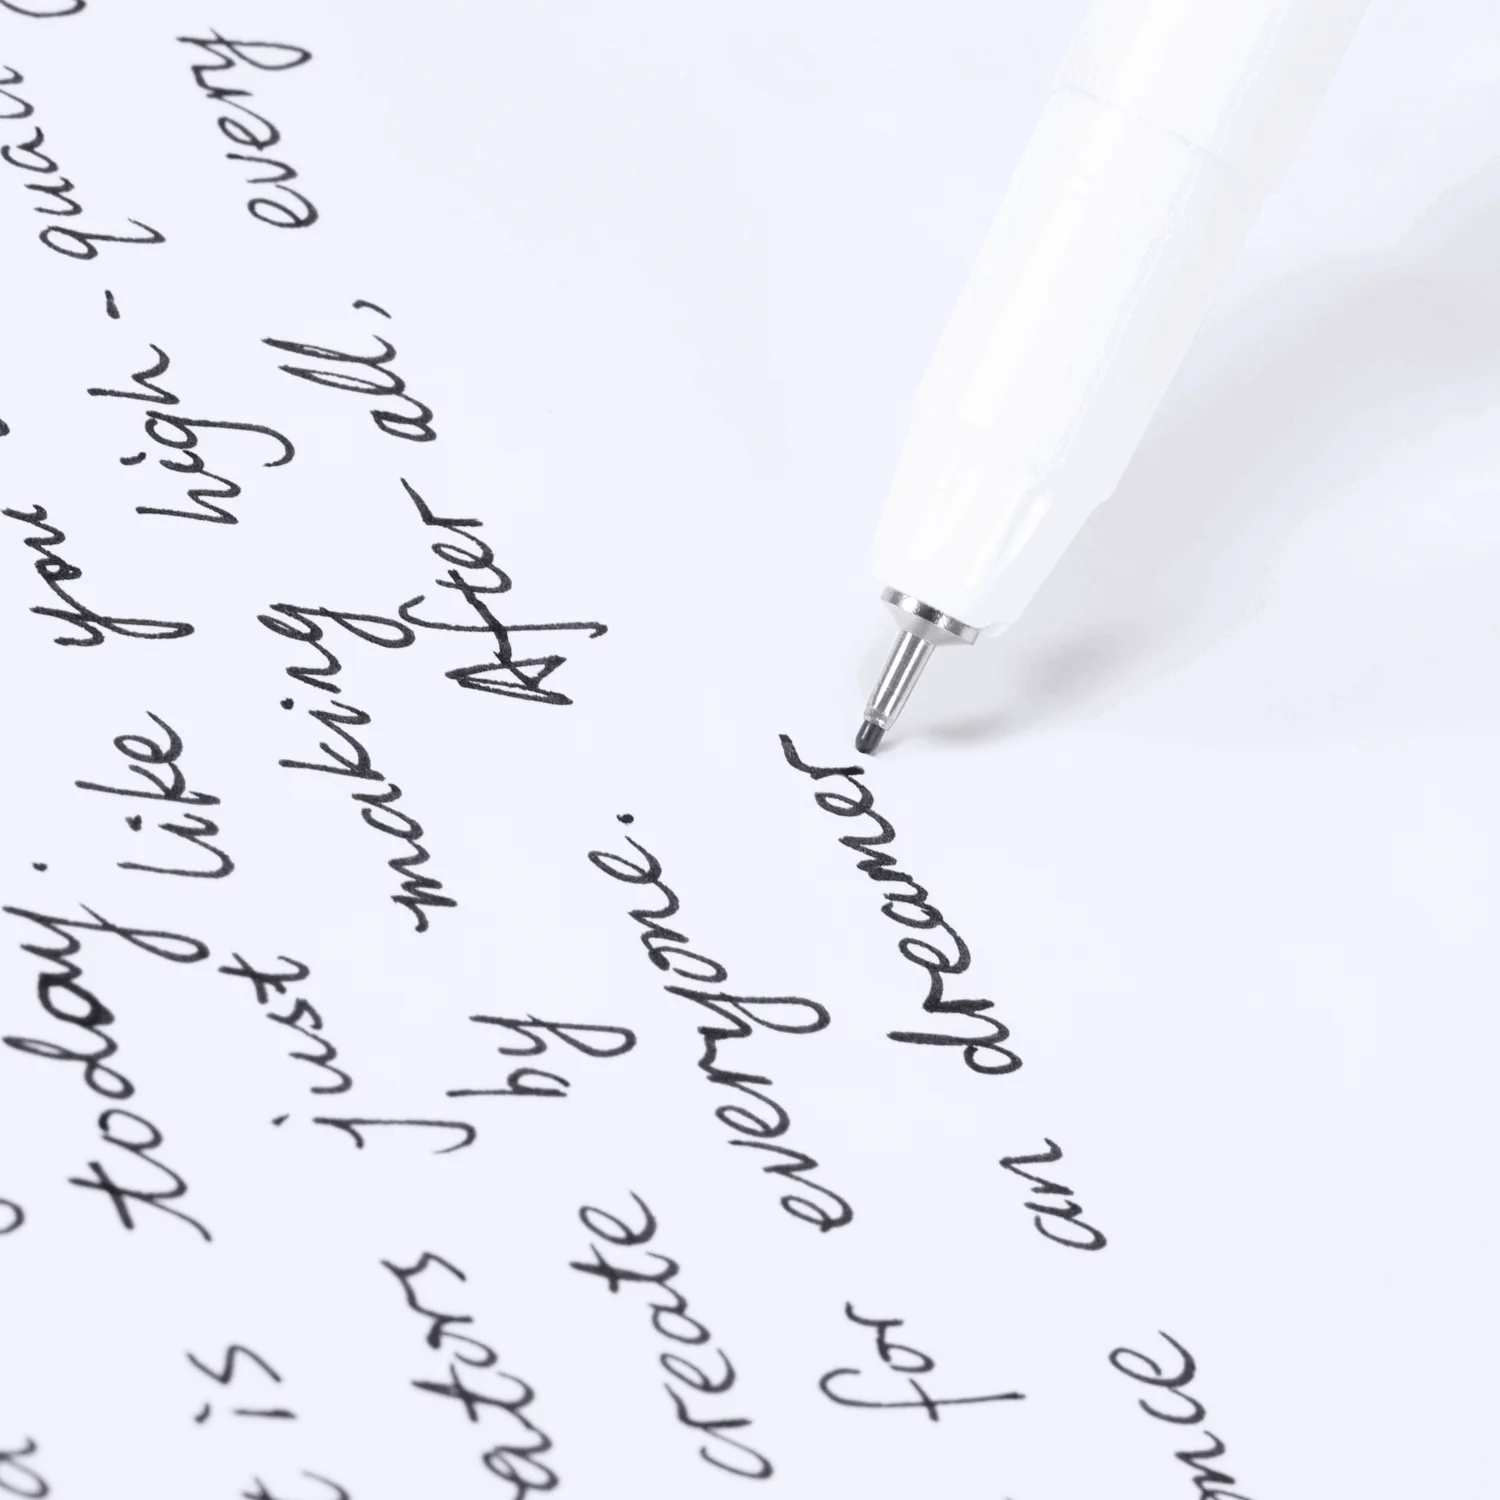 is today.
eators just like you
create by making high-qua
for everyone. After all, every
once an dreamer